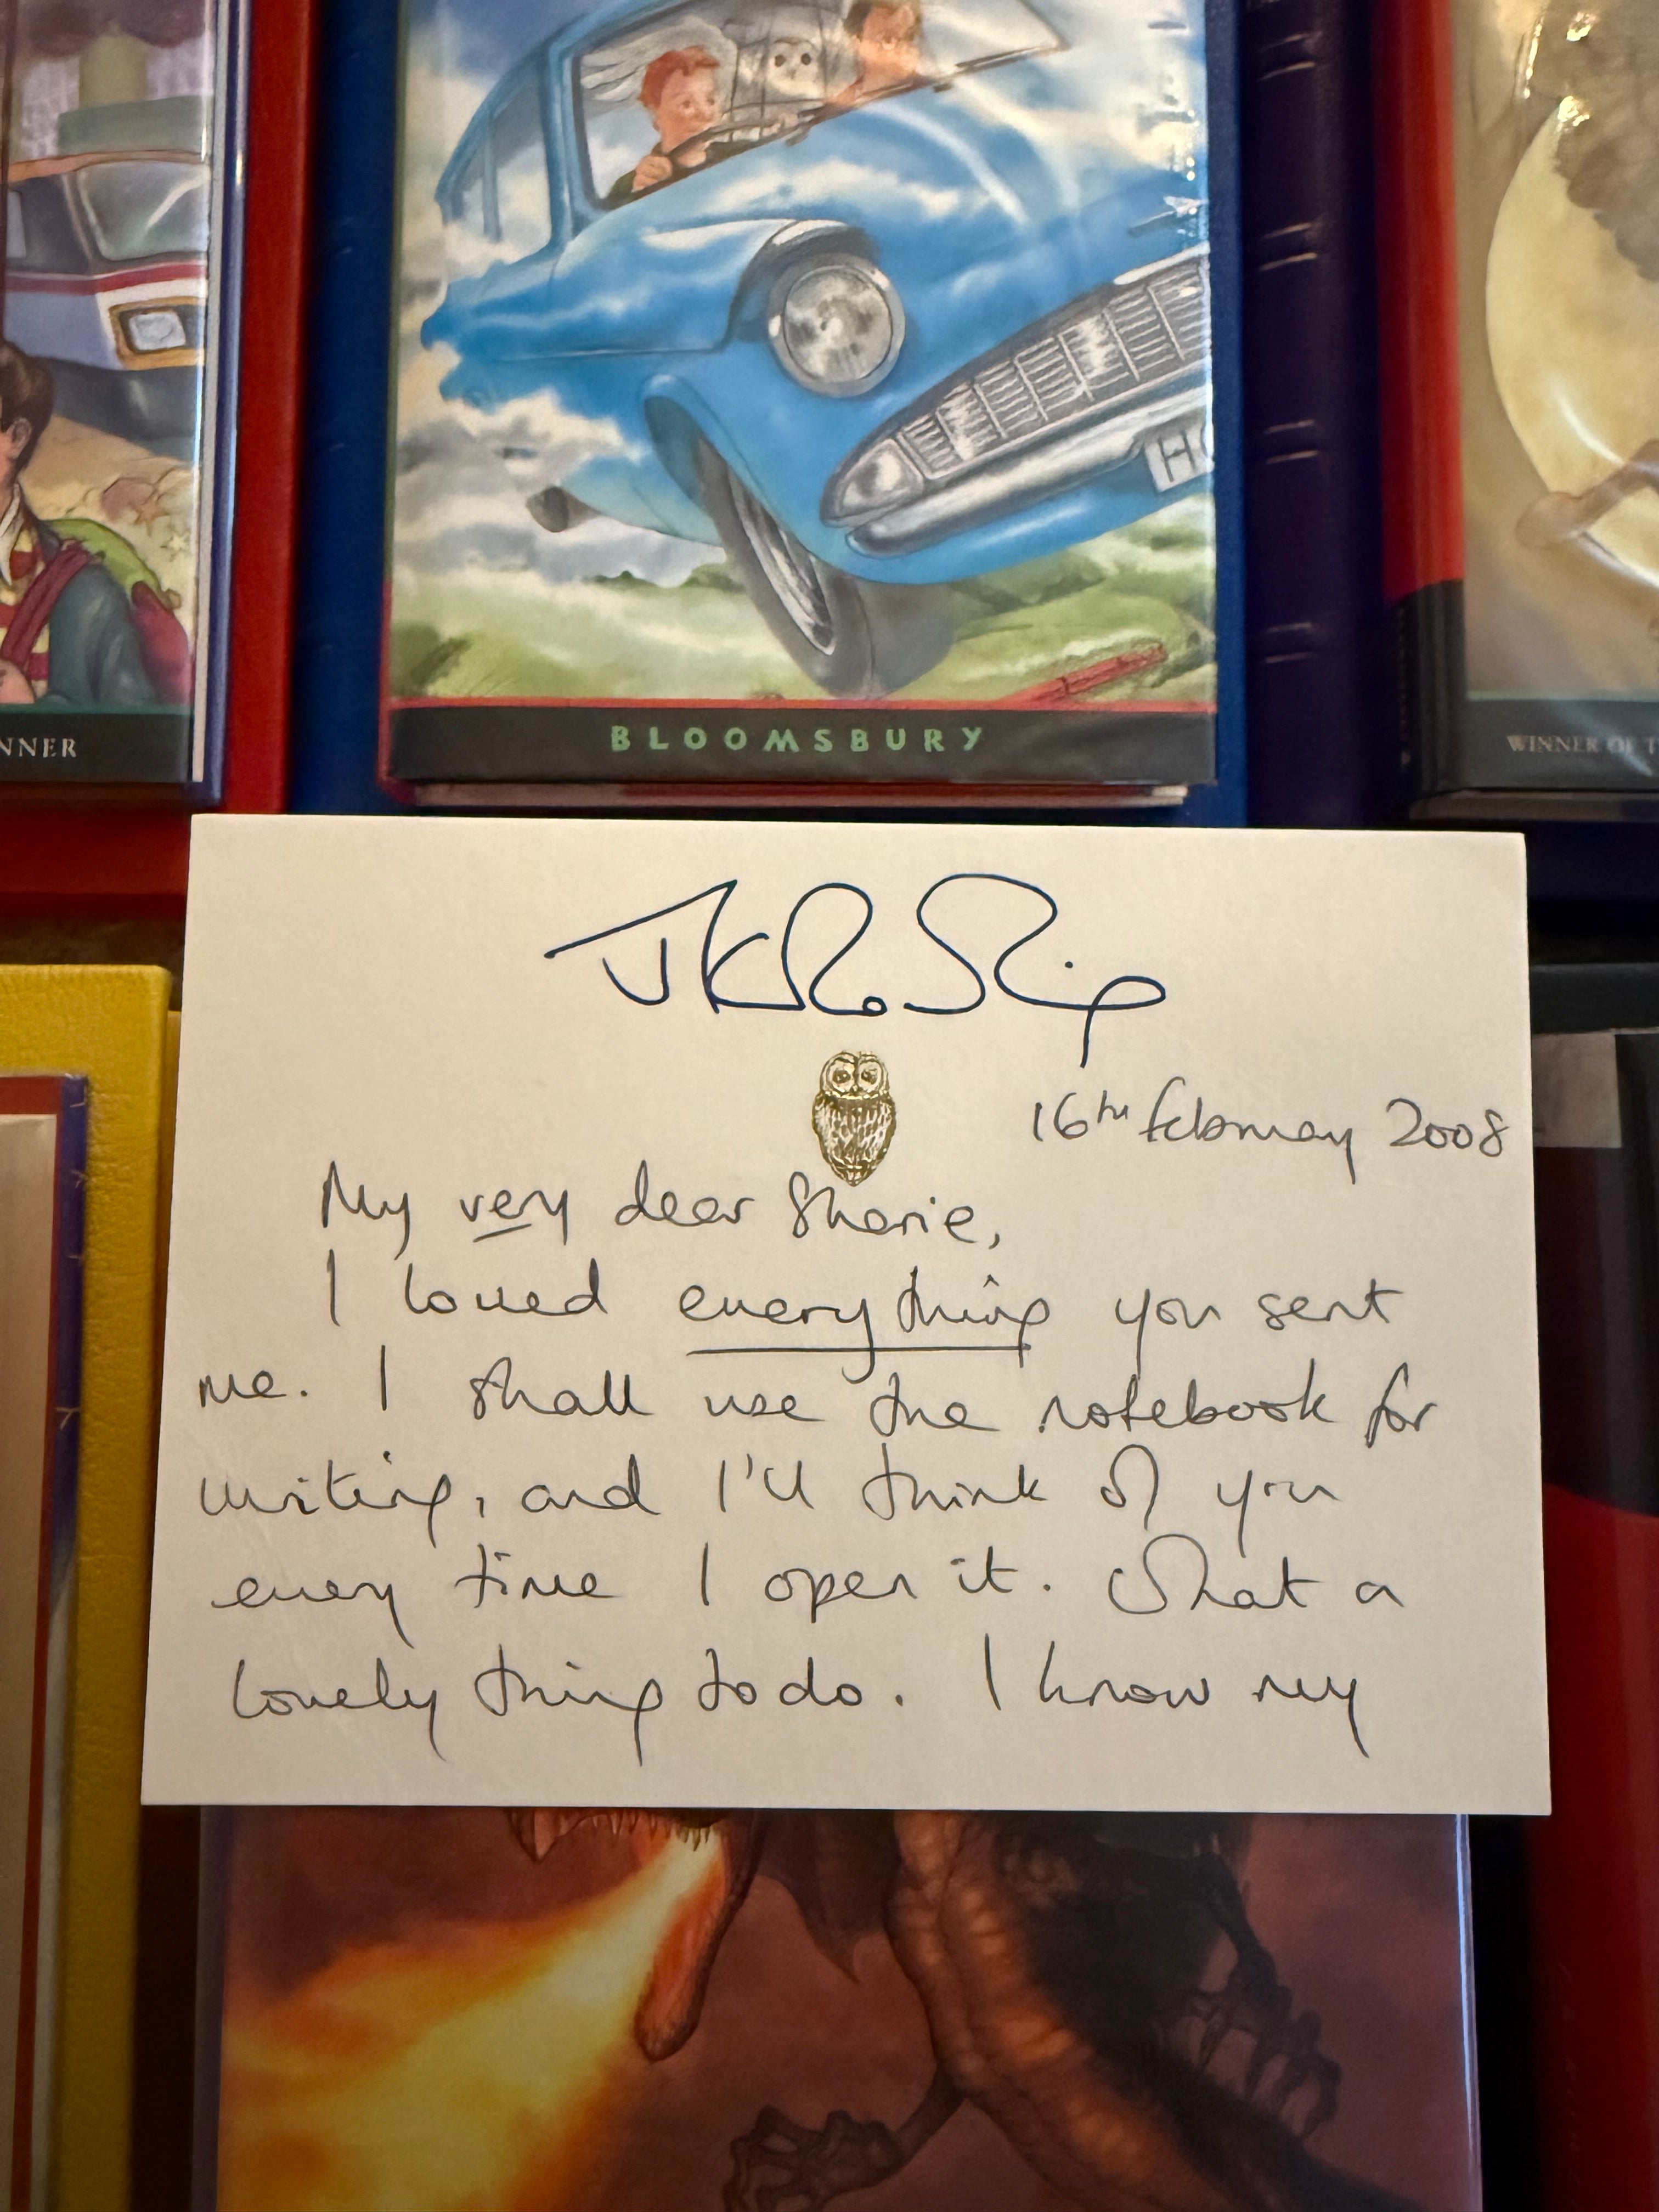 NNER
H
BLOOMSBURY
WINNER OF T
JKRowling
16th February 2008
My very dear Sharie,
I loved everything you sent
me. I shall use the notebook for
writing, and I'll think of you
every time I open it. What a
lovely thing to do. I know my